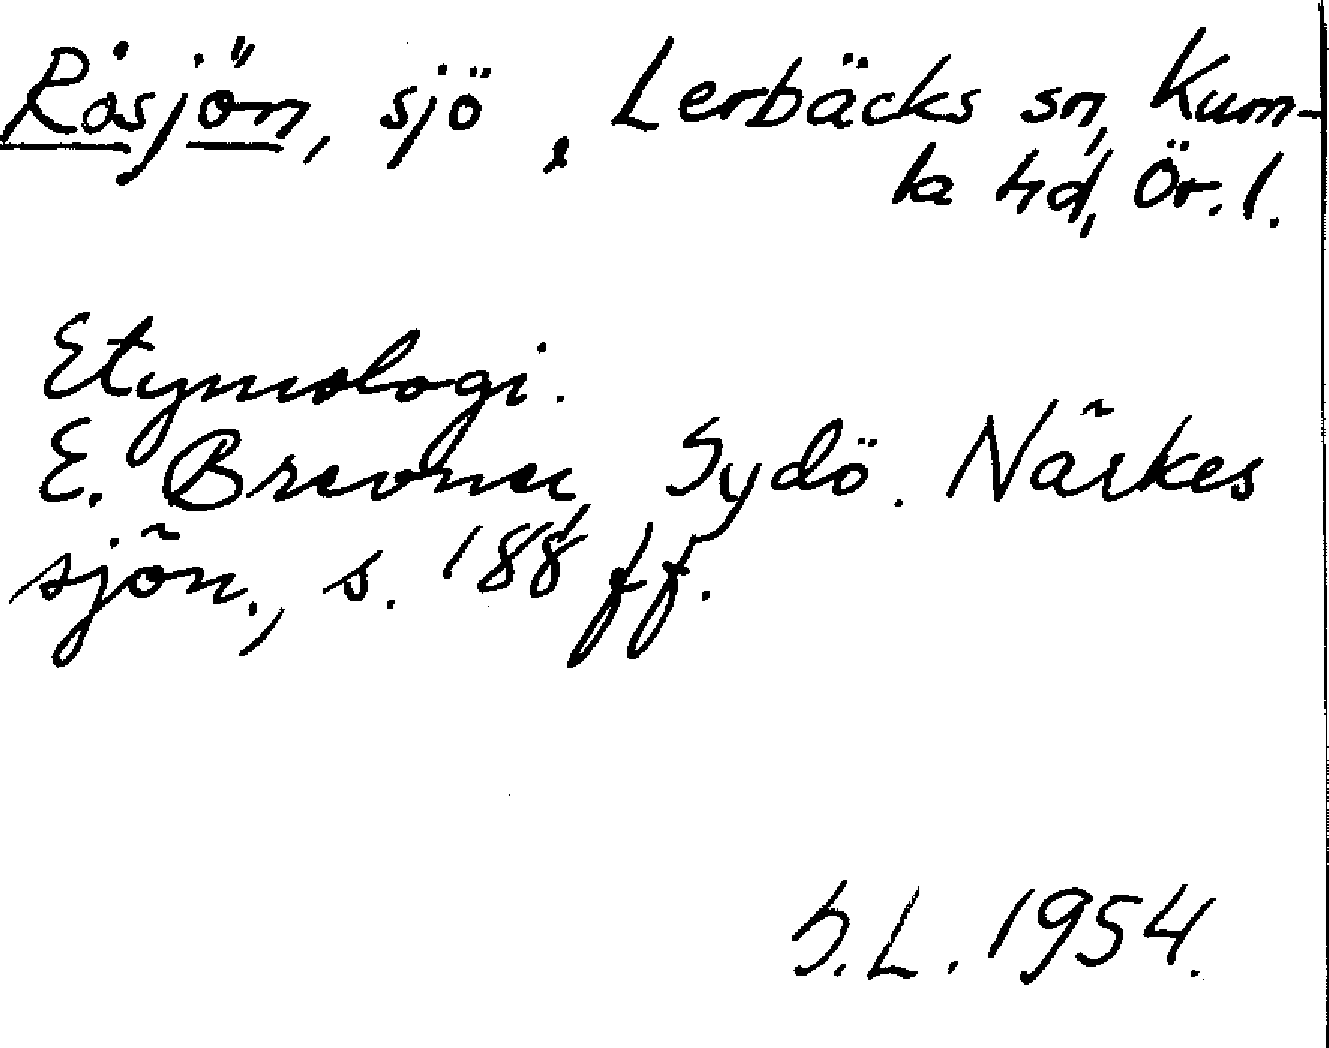 Råsjön, sjö, Lerbäcks sn, Kum-
la hd, Ör. l.
Etymologi.
E. Brevner, Sydö. Närkes
sjön., s. 188 ff.
S.L. 1954.